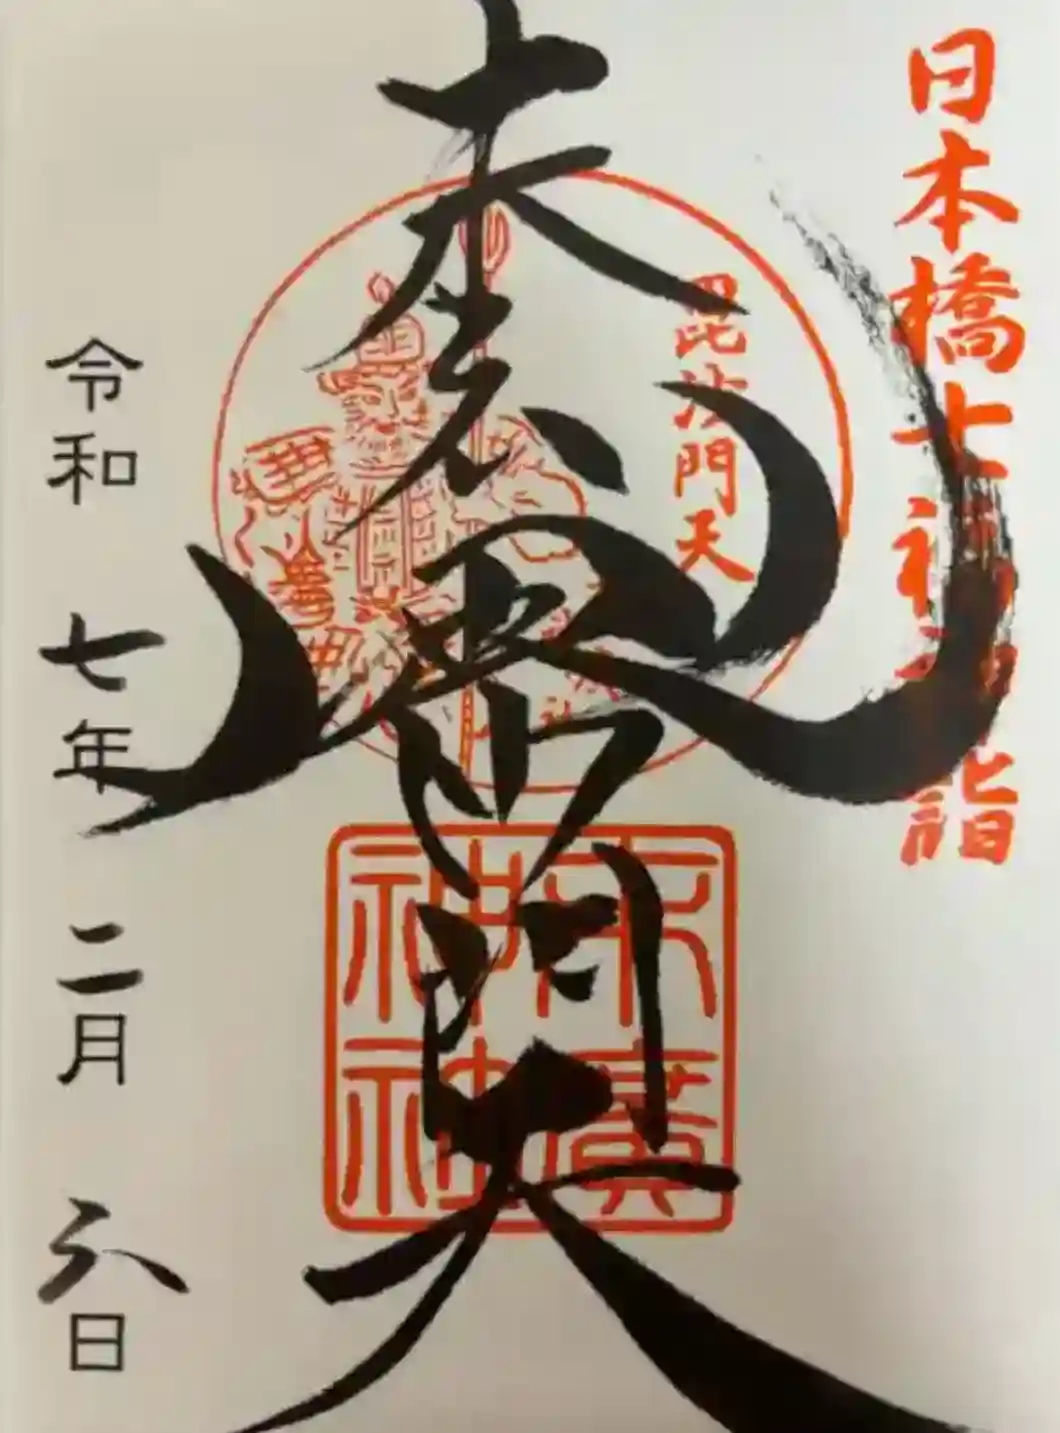 日本橋七福神詣
毘沙門天
毘沙門天
末廣
神社
令和 七年 二月 六日